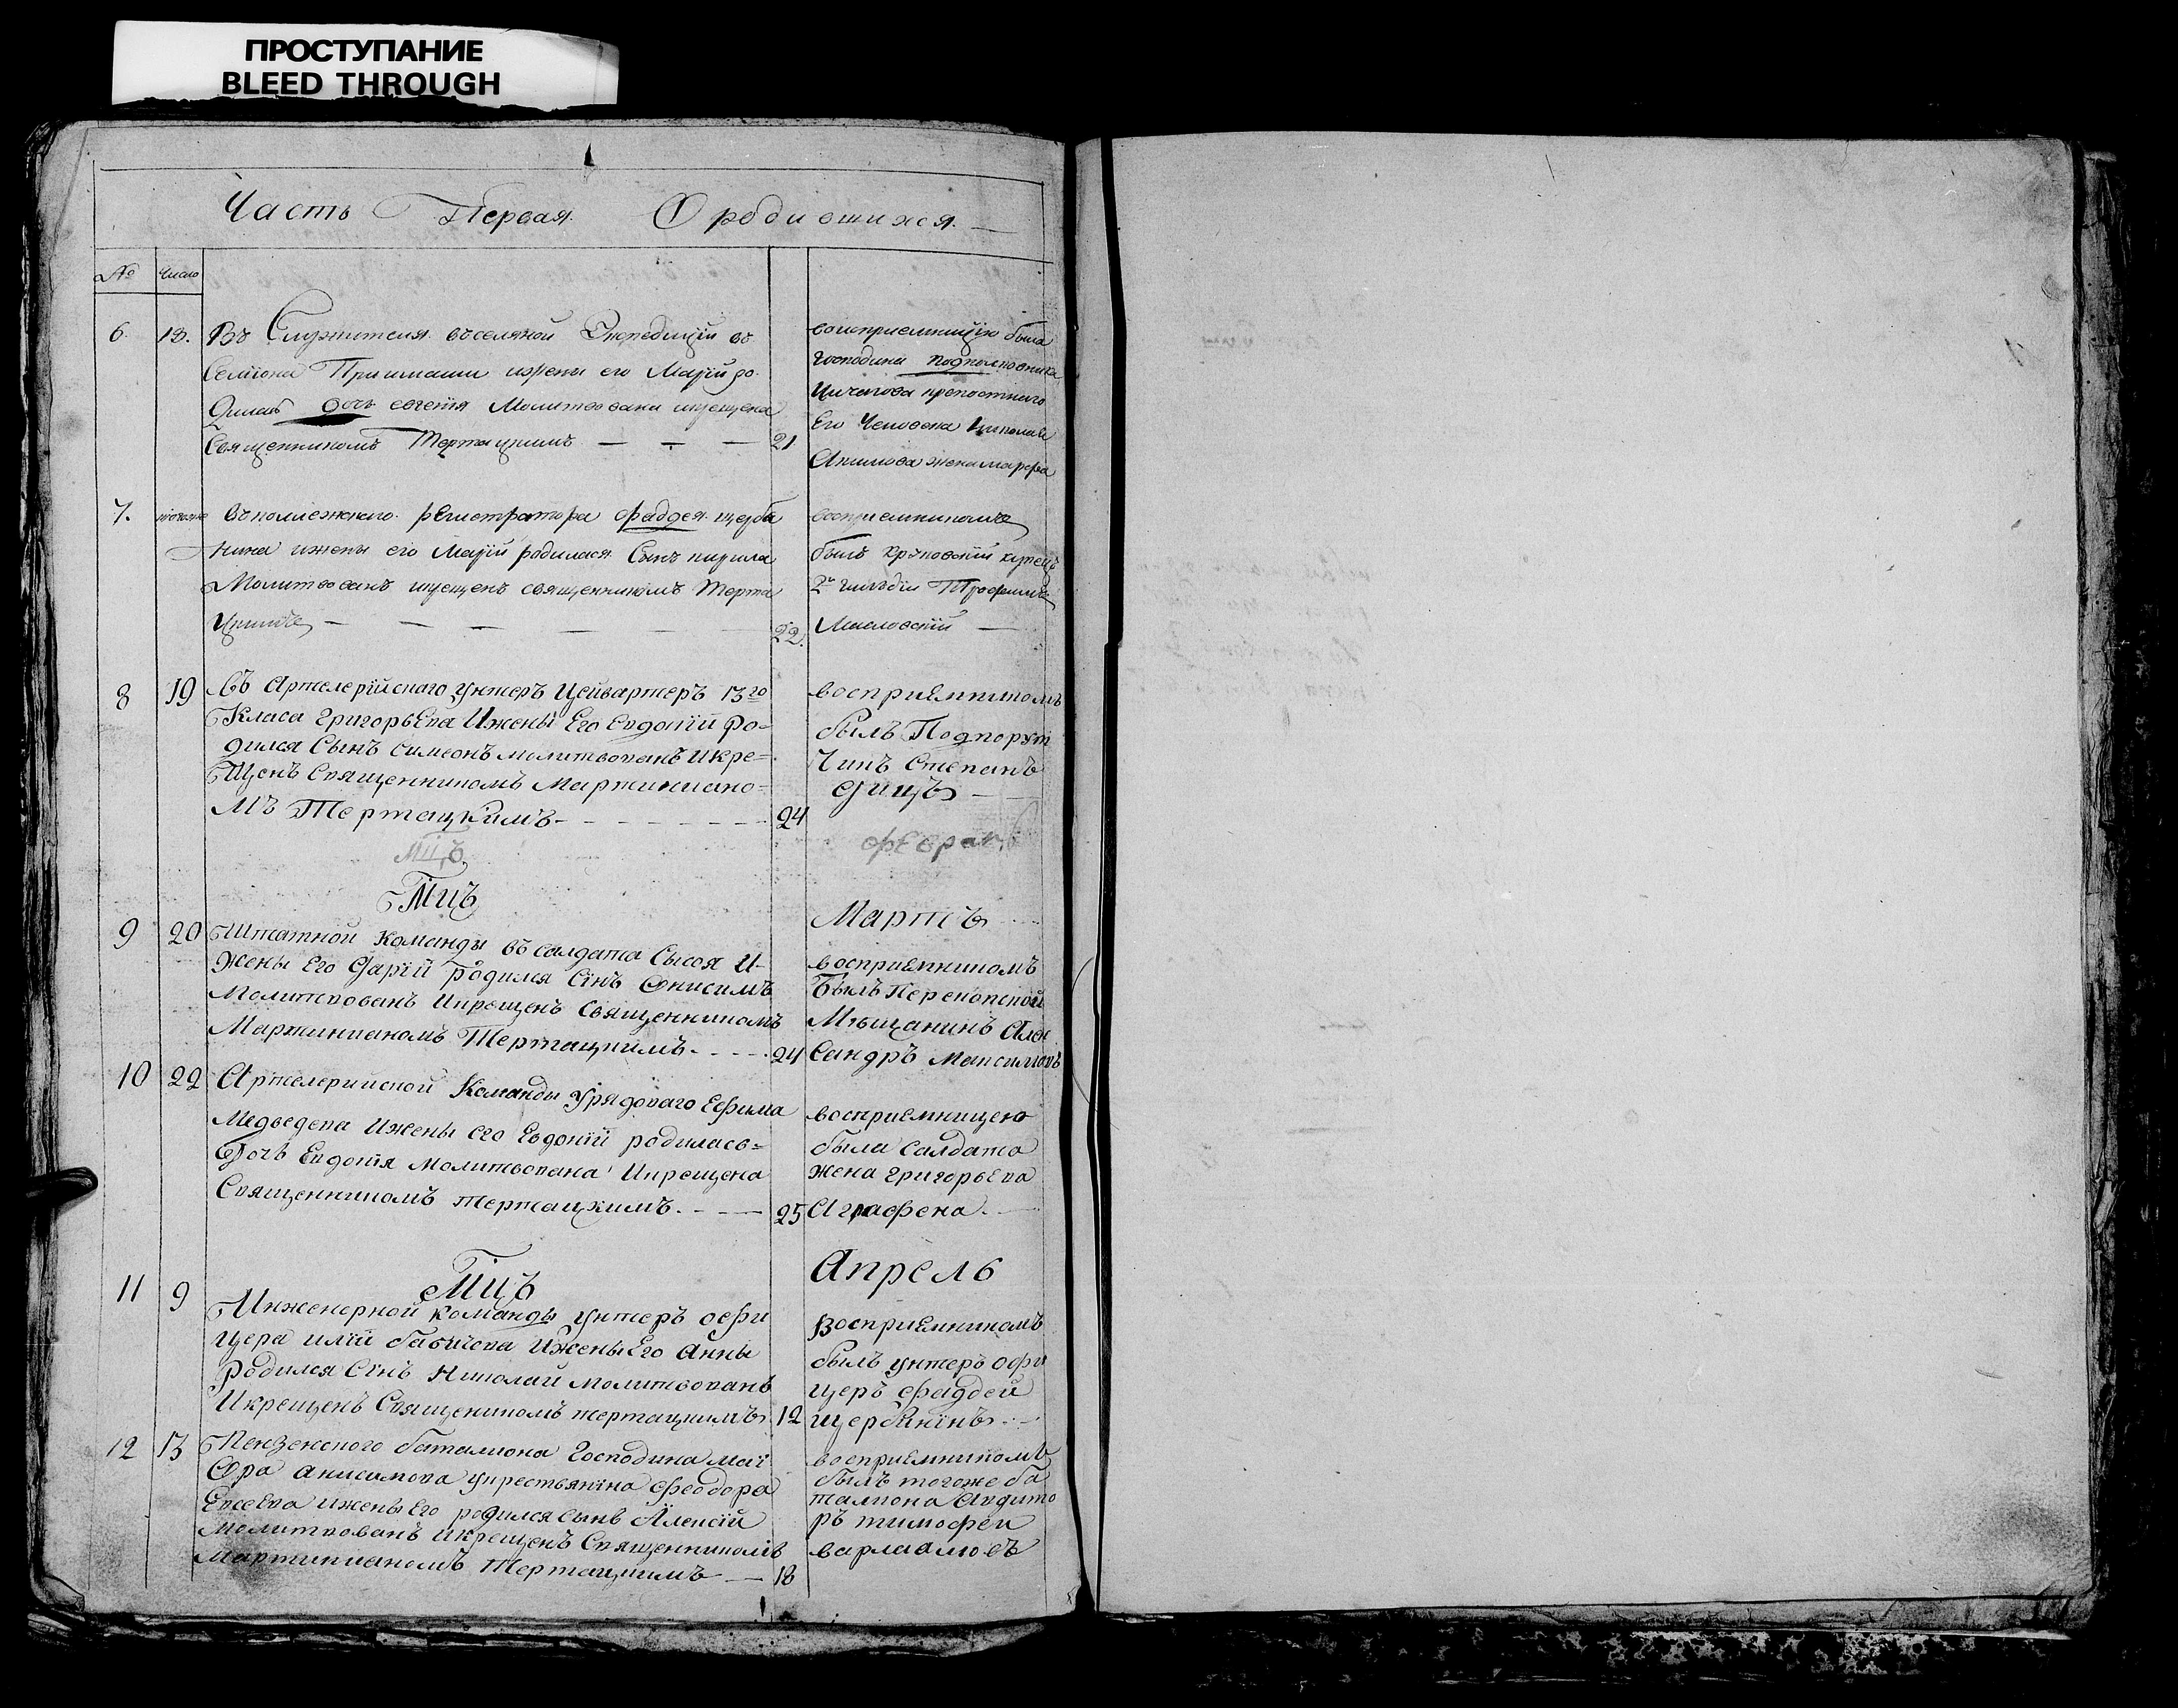 ПРОСТУПАНИЕ
BLEED THROUGH
Часть Первая О родившихся.
№ Число
6. 18. Въ Служителя въселяной Экспедицiи
Семiона ижены его Марiи ро-
дилась дочь евгенiя Молитвована икрещена
Священникомъ Тертацкимъ — — — 21
воспрiемницею была
Господина Подполковника
крепостнаго
Его Человека Николая
Акимова жена марфа
7. тогоже Въколлежскаго регистратора фаддея щерба
нина ижены его Марiи родилася Сынъ кирила
Молитвованъ икрещенъ священникомъ Терта
цкимъ — — — — — — 22.
воспрiемникомъ
былъ купецъ
2й гильдiи Трофимъ
Масловскiй —
8 19 Въ Артелерiйскаго унтеръ Цейвартеръ 13го
Класа григорьева Ижены Его Евдокiи Ро-
дился Сынъ симеонъ молитвованъ икре=
щенъ Священникомъ Мартинiано=
мъ Тертацкимъ - - - - - - - 24
воспрiемникомъ
былъ Подпорут
чикъ Степанъ
Мцъ феврал
Мцъ Мартъ
9 20 Штатной Команды въ салдата Сысоя И-
жены Его Дарiи родился Сiнъ Онисимъ
Молитвованъ Икрещенъ Священникомъ
Мартинианомъ Тертацкимъ - - - - 24
воспрiемникомъ
Былъ Перекопской
Мѣщанинъ Алек
сандръ Максимовъ
10 22 Артелерийской Команды Урядоваго Ефима
Медведева Ижены его Евдокiи родилась=
Дочь Евдокiя Молитвована Икрещена
Священникомъ тертацкимъ. - - — 25
воспрiемницею
была салдата
жена григорьева
Аграфена.
Мцъ Апрель
11 9 Инженерной команды унтеръ офи
цера илiи Ижены Его Анны
родился Сiнъ Николай молитвованъ
Икрещенъ Священикомъ тертацкимъ 12
воспрiемникомъ
былъ унтеръ офи
церъ фаддей
щербанiнъ
12 13 Пензенскаго баталиона Господина маi
ора анисимова укрестьянiна феодора
Евсеева ижены Его родился сынъ Алексiй
Молитвованъ икрещенъ Священникомъ
Мартинианомъ Тертацкимъ — 18
воспрiемникомъ
былъ тогоже ба
талиона Аудито
ръ тимофеи
варламовъ